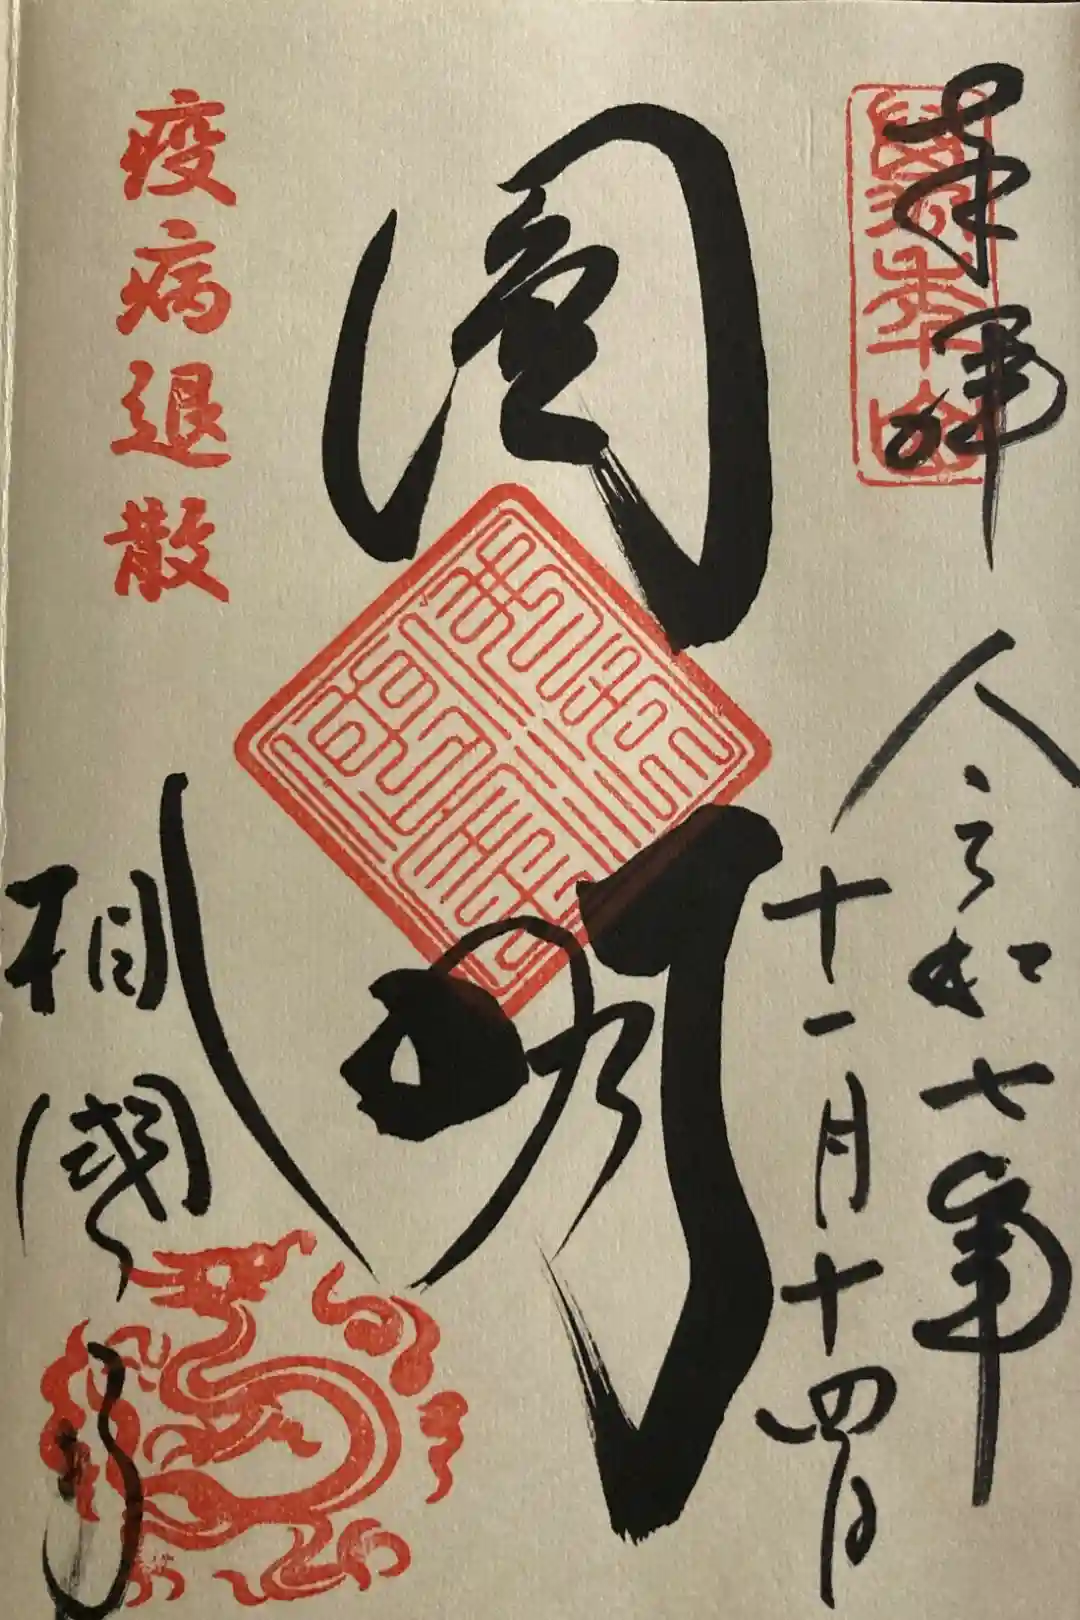 奉拝
萬年山
令和七年
十一月十四日
圓明
疫病退散
相國寺